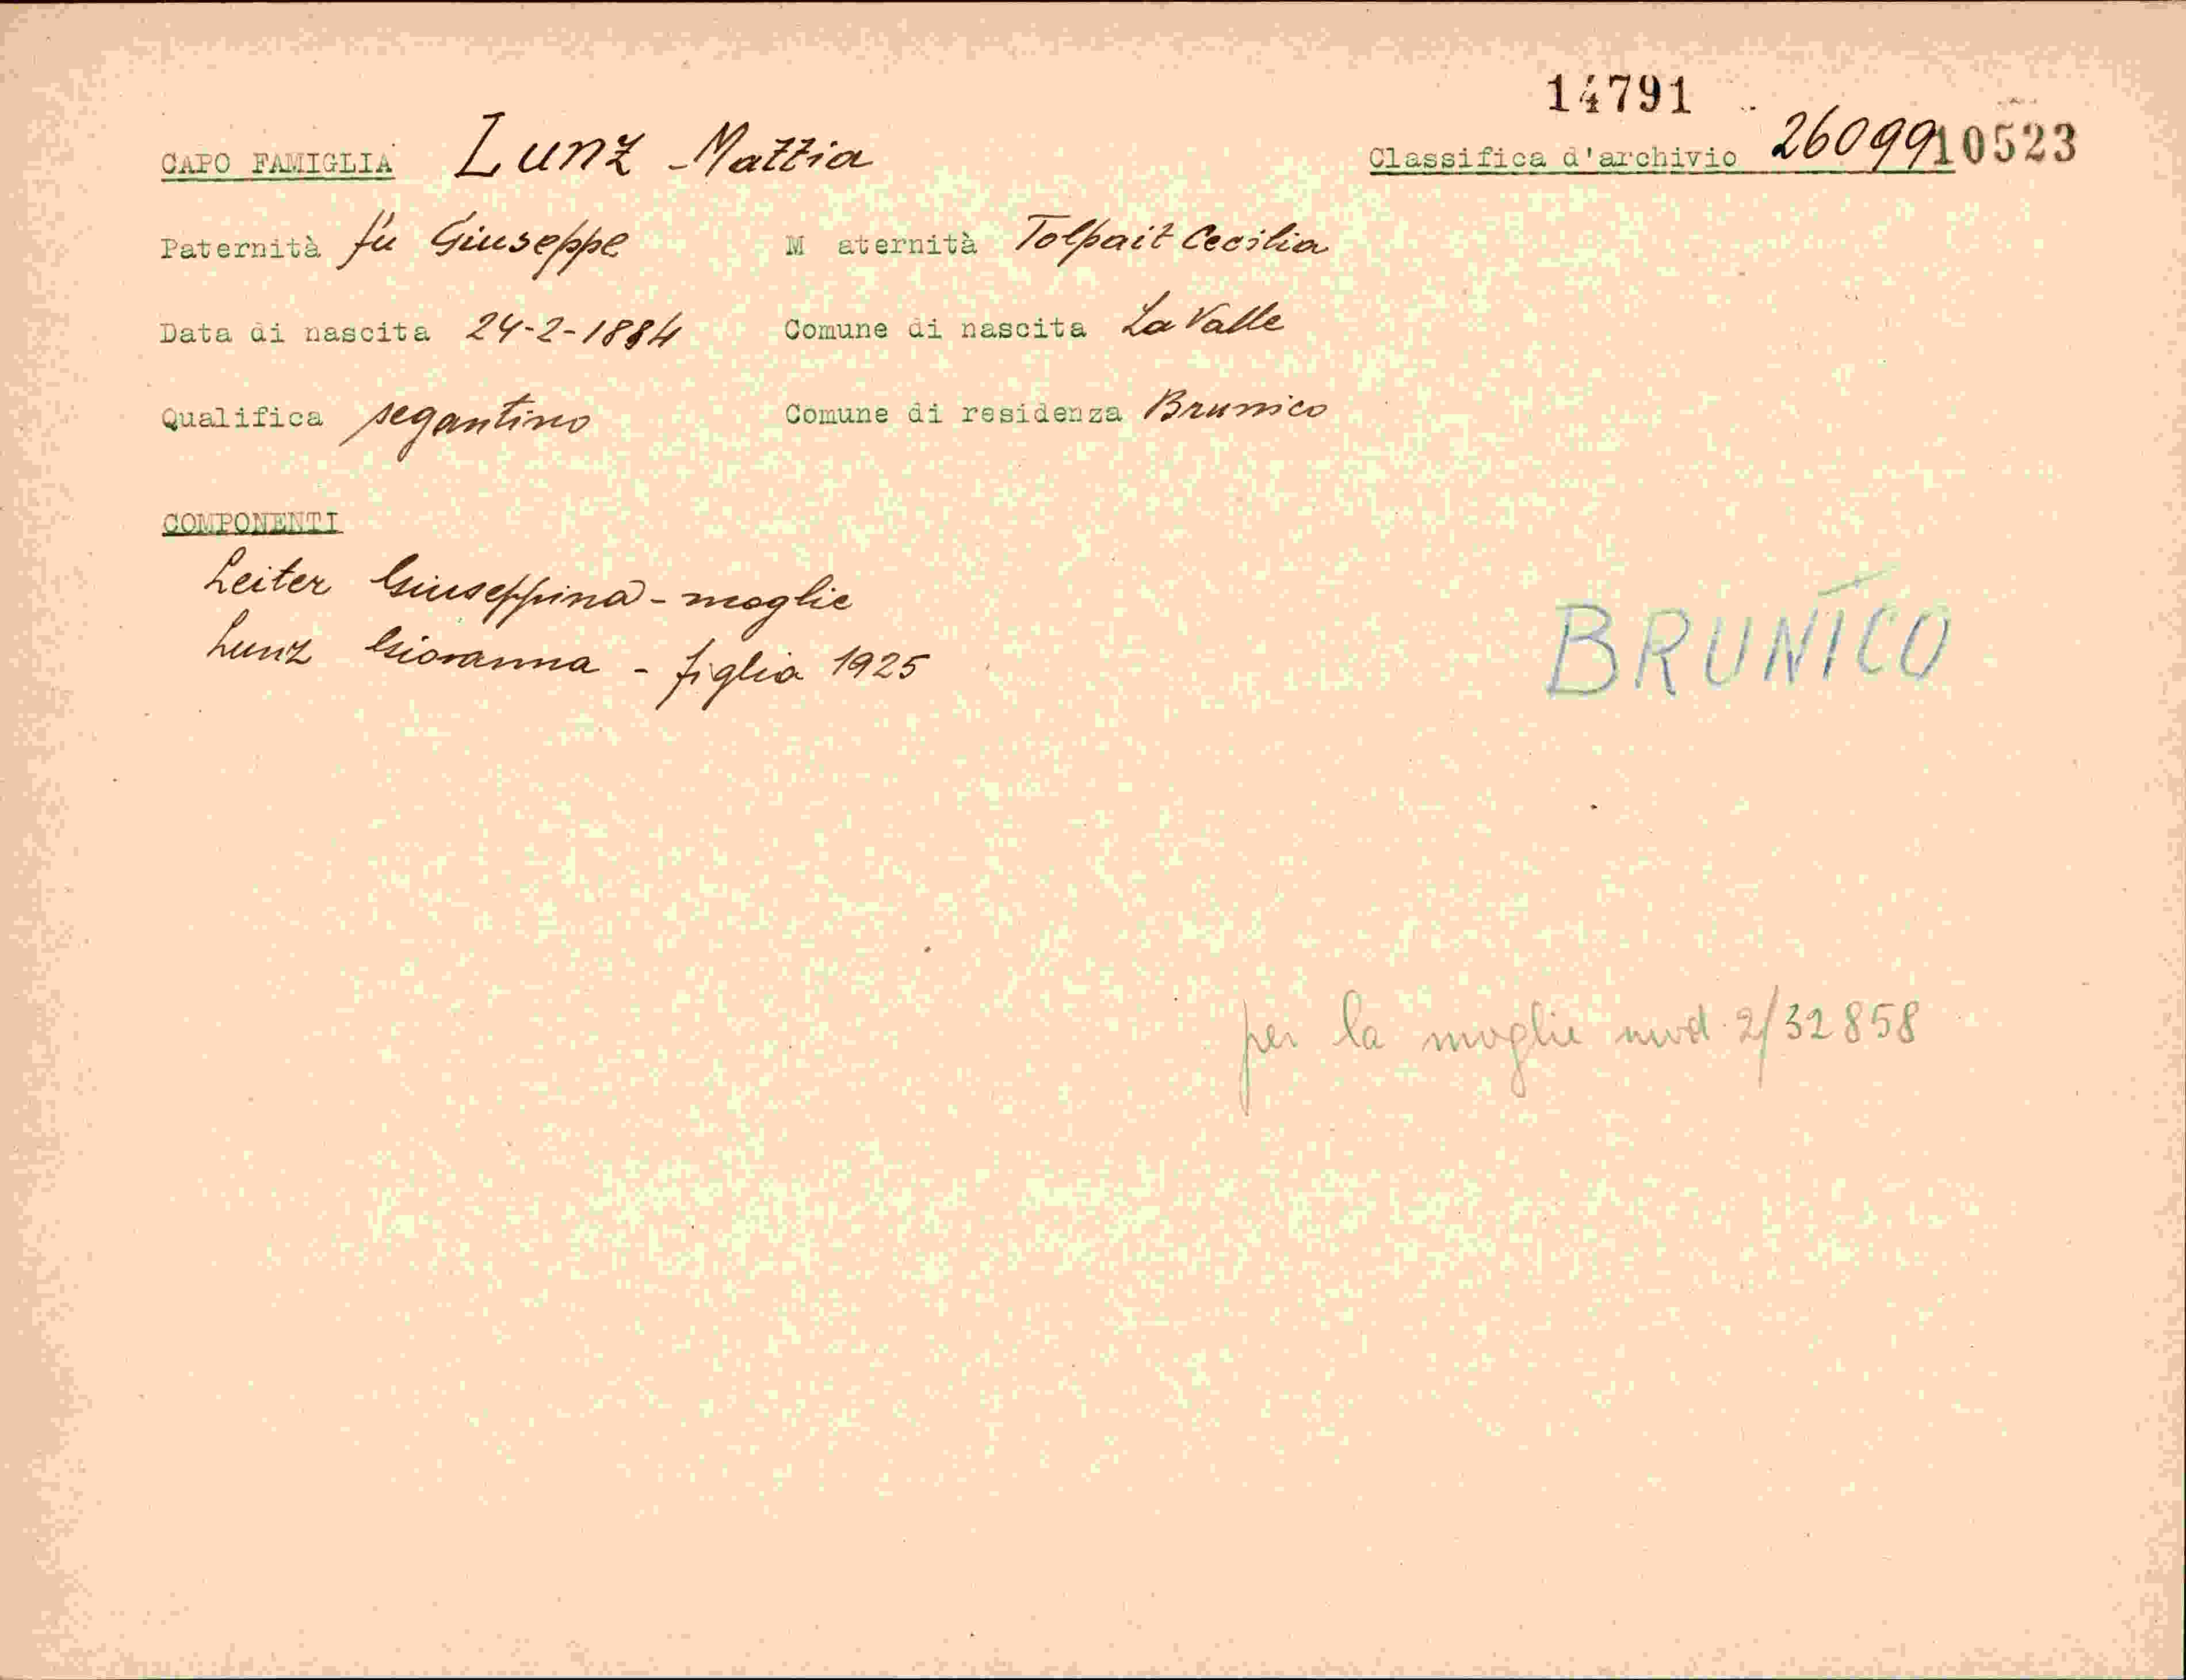 14791
CAPO FAMIGLIA Lunz - Mattia Classifica d'archivio 26099 10523
Paternità fu Giuseppe M aternità Tolpait Cecilia
Data di nascita 24-2-1884 Comune di nascita La Valle
Qualifica segantino Comune di residenza Brunico
COMPONENTI
Leiter Giuseppina - moglie
Lunz Giovanna - figlia 1925
BRUNICO
per la moglie mod. 2/32858